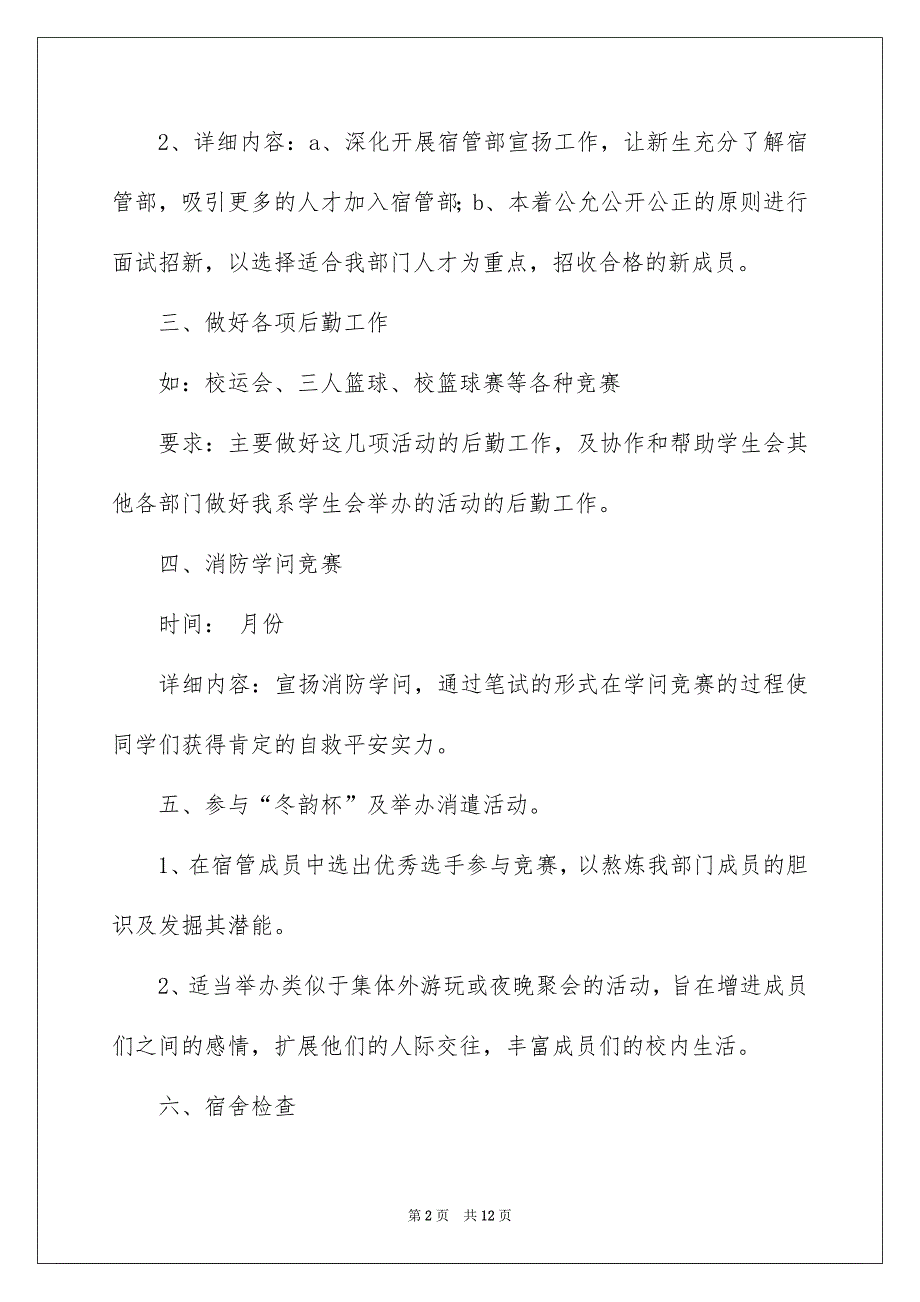 2、详细内容：a、深化开展宿管部宣扬工作，让新生充分了解宿
管部，吸引更多的人才加入宿管部；b、本着公允公开公正的原则进行
面试招新，以选择适合我部门人才为重点，招收合格的新成员。
三、做好各项后勤工作
如：校运会、三人篮球、校篮球赛等各种竞赛
要求：主要做好这几项活动的后勤工作，及协作和帮助学生会其
他各部门做好我系学生会举办的活动的后勤工作。
四、消防学问竞赛
时间： 月份
详细内容：宣扬消防学问，通过笔试的形式在学问竞赛的过程使
同学们获得肯定的自救平安实力。
五、参与“冬韵杯”及举办消遣活动。
1、在宿管成员中选出优秀选手参与竞赛，以熬炼我部门成员的胆
识及发掘其潜能。
2、适当举办类似于集体外游玩或夜晚聚会的活动，旨在增进成员
们之间的感情，扩展他们的人际交往，丰富成员们的校内生活。
六、宿舍检查
第 2 页 共 12 页